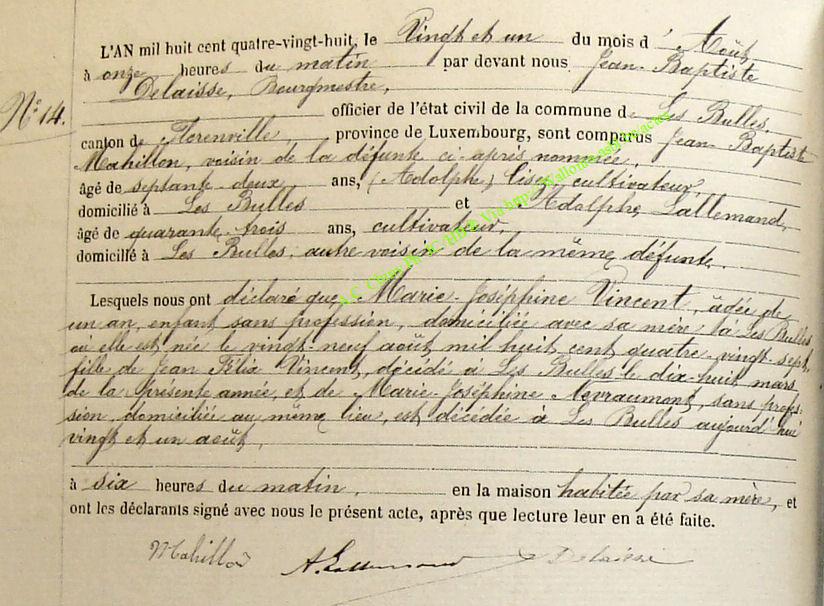 L'AN mil huit cent quatre-vingt-huit, le Vingt et un du mois d' Août
à onze heures du matin par devant nous Jean-Baptiste
Delaisse, Bourgmestre,
N° 14.
officier de l'état civil de la commune de Les Bulles,
canton de Florenville province de Luxembourg, sont comparus Jean-Baptiste
Mahillon, voisin de la défunte ci-après nommée,
âgé de septante-deux ans, (Adolphe) cultivateur,
domicilié à Les Bulles et Adolphe Lallemand,
âgé de quarante-trois ans, cultivateur,
domicilié à Les Bulles, autre voisin de la même défunte.
Lesquels nous ont déclaré que Marie-Joséphine Vincent, âgée de
un an, enfant sans profession, domiciliée avec sa mère à Les Bulles
où elle est née le vingt-neuf août mil huit cent quatre-vingt-sept,
fille de Jean Félix Vincent, décédé à Les Bulles le dix-huit mars
de la présente année, et de Marie-Joséphine Nevraumont, sans profes-
sion, domiciliée au même lieu, est décédée à Les Bulles aujourd'hui
vingt et un août,
à six heures du matin, en la maison habitée par sa mère, et
ont les déclarants signé avec nous le présent acte, après que lecture leur en a été faite.
Mahillon A. Lallemand Delaisse